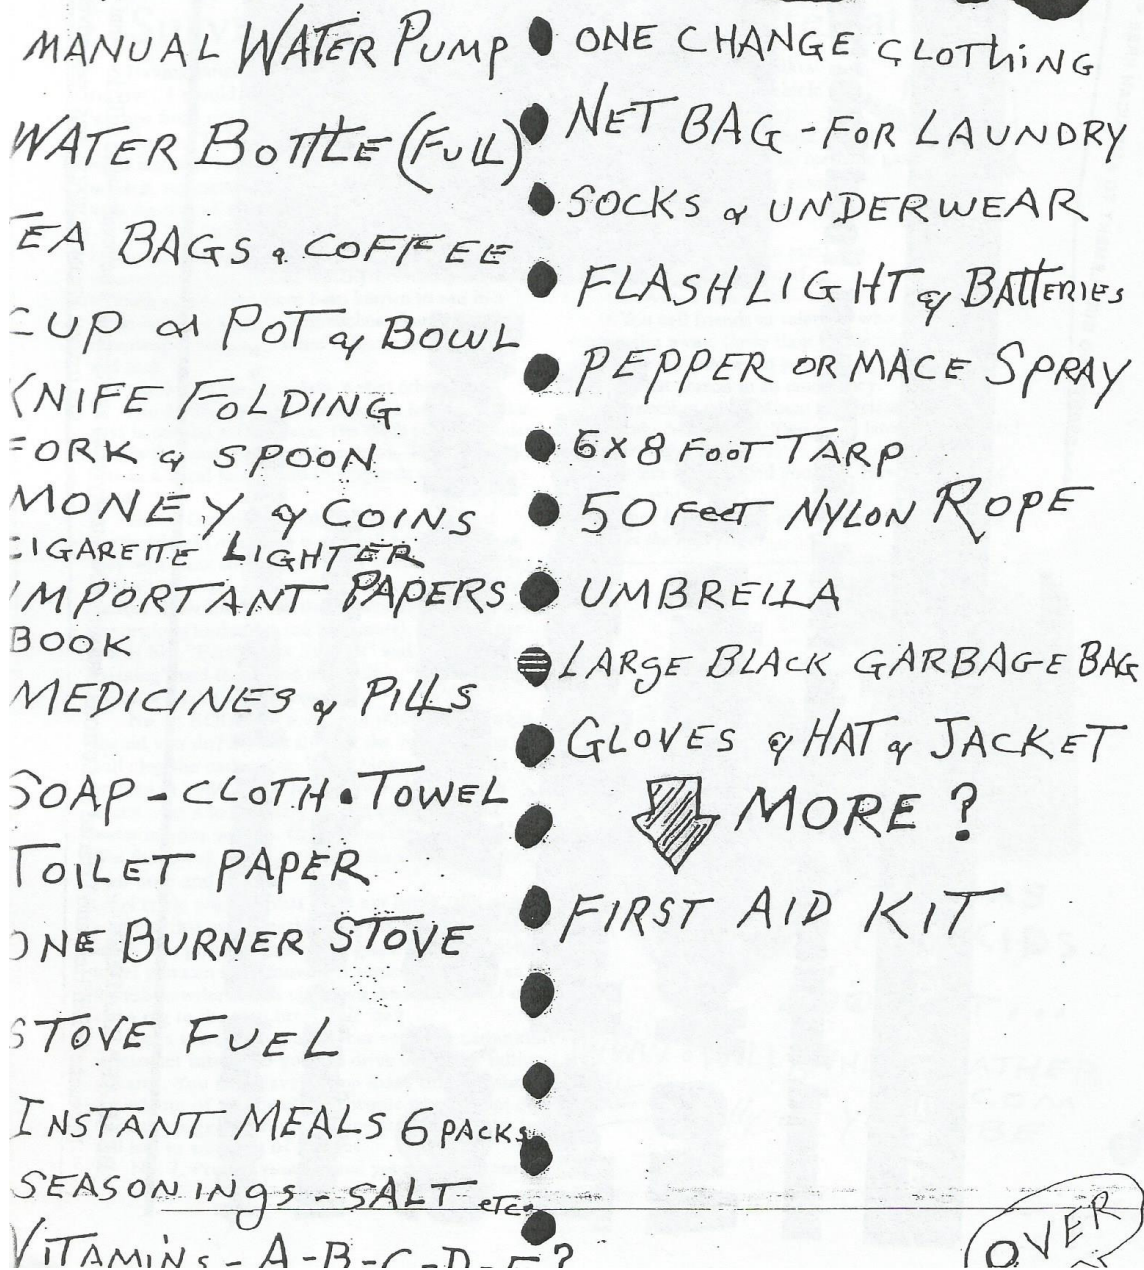 MANUAL WATER PUMP
WATER BOTTLE (FULL)
TEA BAGS & COFFEE
CUP or POT & BOWL
KNIFE FOLDING
FORK & SPOON
MONEY & COINS
CIGARETTE LIGHTER
IMPORTANT PAPERS
BOOK
MEDICINES & PILLS
SOAP - CLOTH • TOWEL
TOILET PAPER
ONE BURNER STOVE
STOVE FUEL
INSTANT MEALS 6 PACKS
SEASONINgS - SALT etc.
VITAMINS - A-B-C-D-E?
ONE CHANGE CLOThiNG
NET BAG - FOR LAUNDRY
SOCKS & UNDERWEAR
FLASHLIGHT & BATTERIES
PEPPER OR MACE SPRAY
6X8 FOOT TARP
50 FeeT NYLON ROPE
UMBRELLA
LARgE BLACK GARBAGE BAG
GLOVES & HAT & JACKET
MORE?
FIRST AID KIT
OVER